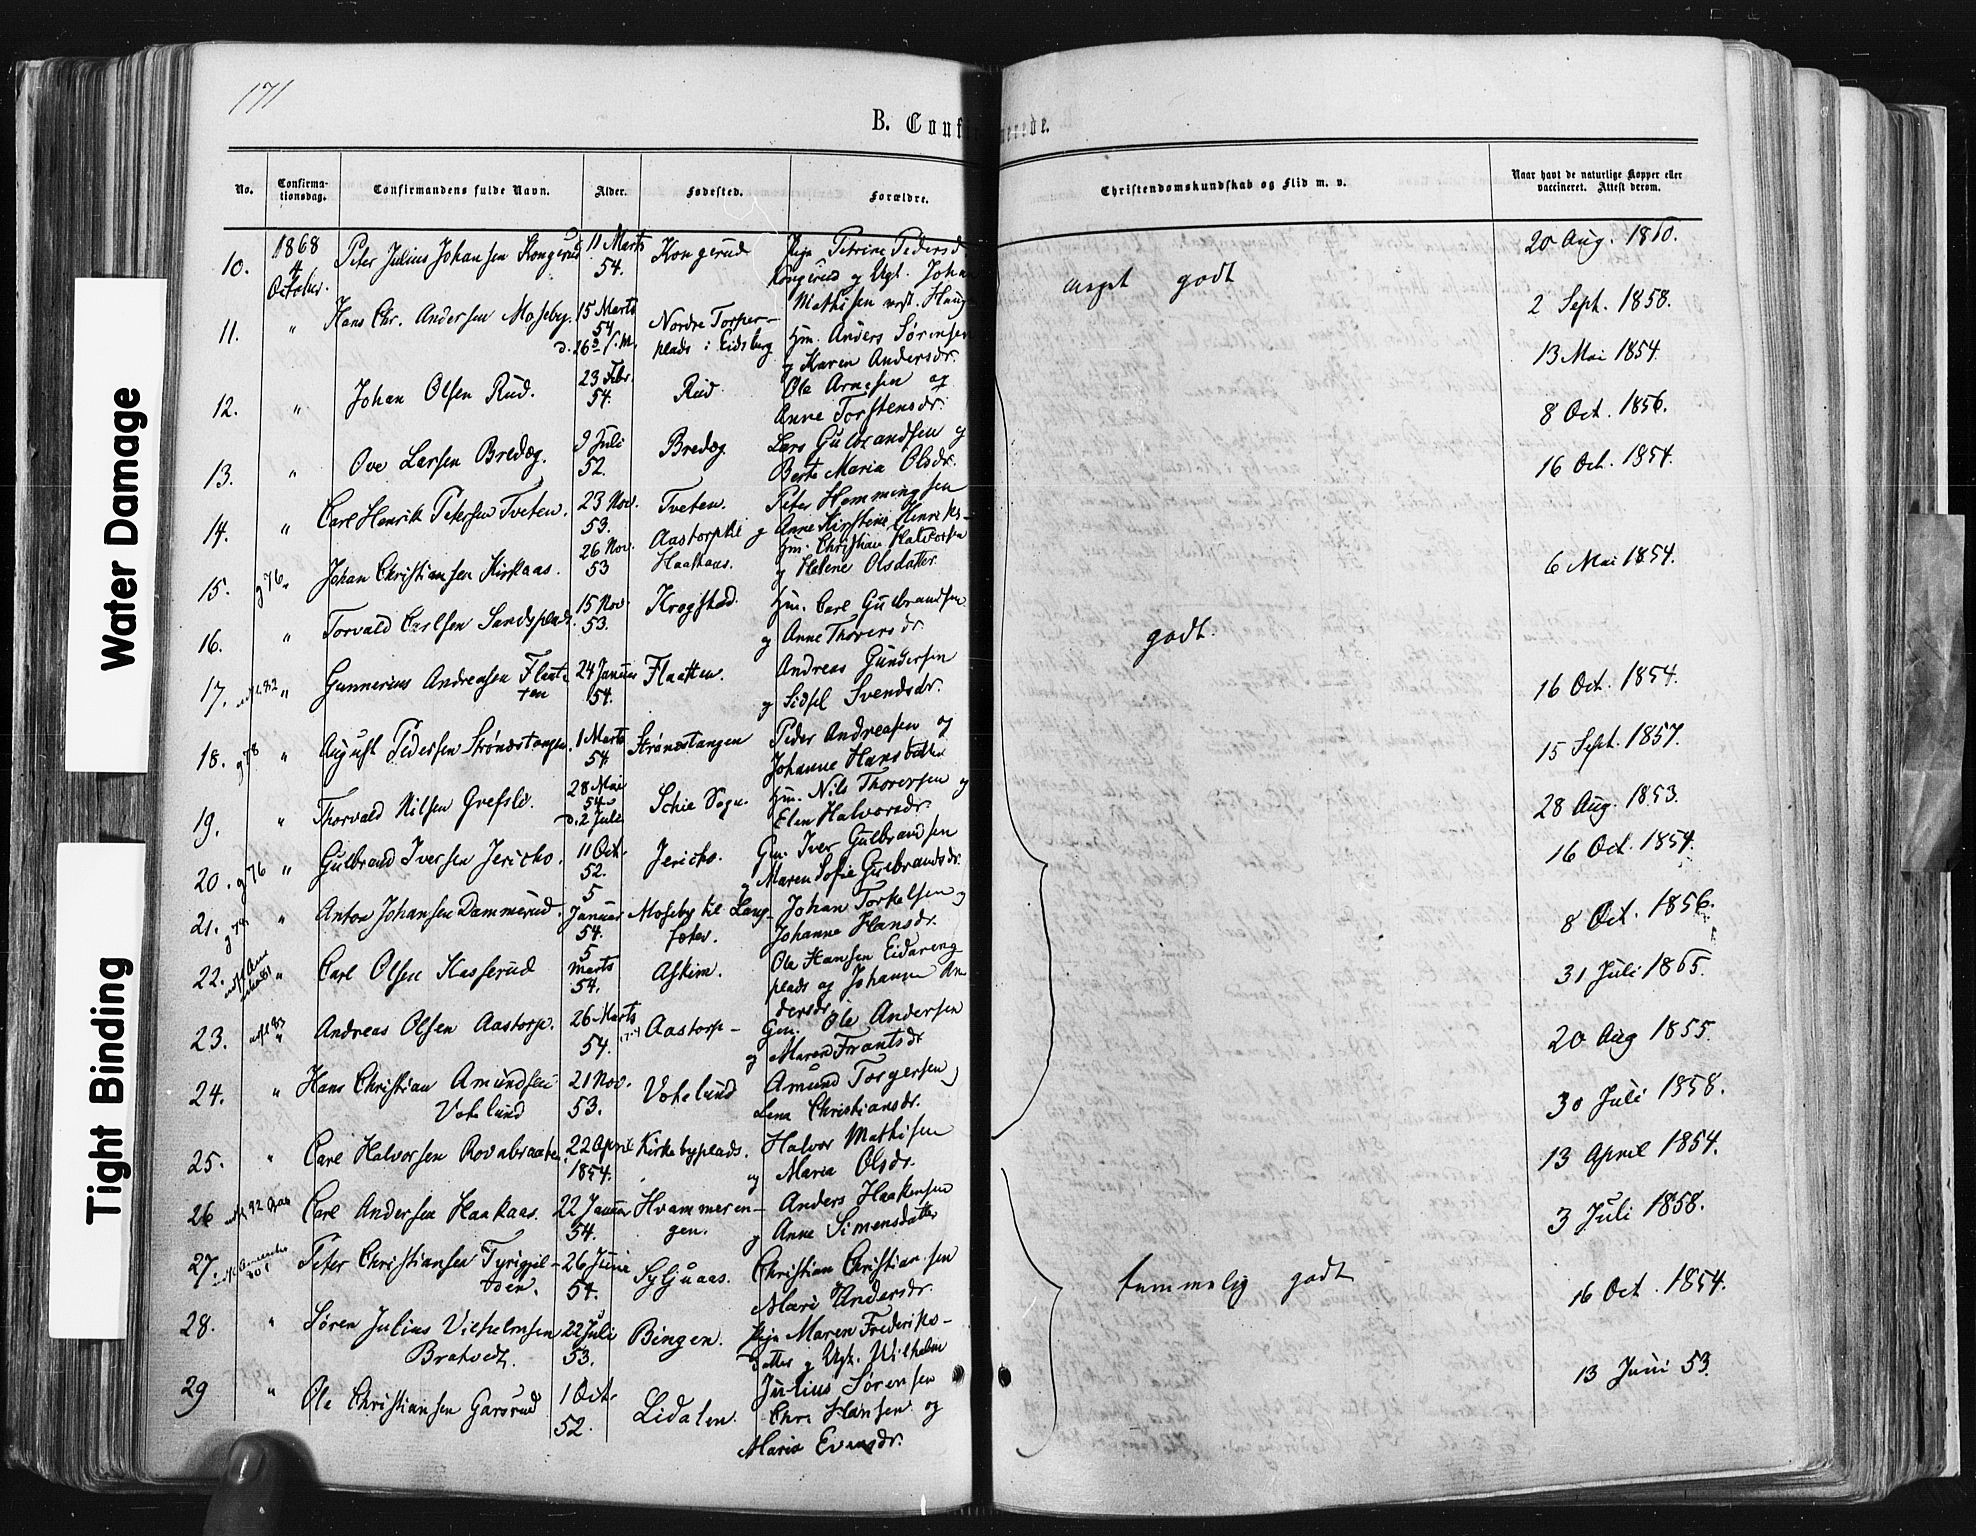 171
B. Confirmerede.
No.
Confirmationsdag.
Confirmandens fulde Navn.
Alder.
Fødested.
Forældre.
Christendomskundskab og Flid m. v.
Naar havt de naturlige Kopper eller vaccineret. Attest derom.
10. 1868 4 October. Peter Julius Johansen Kongerud 11 Marts 54. Kongerud Pige Petrine Pedersd. Kongerud og Ugk. Johan Mathisen
meget godt
20 Aug. 1860.
11. " Hans Chr. Andersen Moseby. 15 Marts 54 Nordre Torper- plads i Eidsberg Hm. Anders Sørensen og Karen Andersdr.
2 Sept. 1858.
12. " Johan Olsen Rud. 23 Febr. 54. Rud Ole Arnesen og Anne Torstensdr.
13 Mai 1854.
13. " Ove Larsen Bredeg. 9 Juli 52. Bredeg Lars Gulbrandsen og Berte Maria Olsdr.
8 Oct. 1856.
14. " Carl Henrik Petersen Tveten. 23 Nov. 53. Tveten. Peter Hemmingsen og Anne Kirstine Henriks-
16 Oct. 1854.
15. g 76 " Johan Christiansen Kirkaas. 26 Nov. 53 Aastorp til Haakaas. Hm. Christian Halvorsen og Helene Olsdatter
6 Mai 1854.
16. " Torvald Carlsen Sandsplads. 15 Nov. 53. Krogstad. Hm. Carl Gulbrandsen og Anne Thorersdr.
godt.
17. 82 " Gunnerius Andreasen Flaatten 24 Januar 54. Flaatten. Andreas Gundersen og Sidsel Svendsdr.
16 Oct. 1854.
18. g 78 " August Pedersen Strønestangen. 1 Marts 54 Strønestangen Peder Andreasen og Johanne Hansdatter
15 Sept. 1857.
19. " Thorvald Nilsen Grefslv. 28 Mai 54 d. 2 Juli Schie Sogn. Hm. Nils Thorersen og Elen Halvorsdr.
28 Aug. 1853.
20. g 76 " Gulbrand Iversen Jericho. 11 Oct. 52. Jericho. Gm. Iver Gulbrandsen og Maren Sofie Gulbrandsdr.
16 Oct. 1854.
21. " Anton Johansen Dammerud. 5 Januar 54. Moseby til Lang- Johan Torkelsen og Johanne Hansdr.
8 Oct. 1856.
22. " Carl Olsen Kasserud 5 Marts 54. Askim. Ole Hansen Eidareng plads og Johanne Andersdr
31 Juli 1865.
23. 83 " Andreas Olsen Aastorp. 26 Marts 54. Aastorp- Gm. Ole Andersen og Maren Frantsdr
20 Aug 1855.
24. " Hans Christian Amundsen Votelund 21 Nov. 53. Votelund Amund Torgersen og Lena Christiansdr.
30 Juli 1858.
25. " Carl Halvorsen Rovabraaten 22 April 1854. Kirkebyplads. Halvor Mathisen og Maria Olsdr.
13 April 1854.
26 92 " Carl Andersen Haakaas. 22 Januar 54. Hvammeren- gen. Anders Haakensen og Anne Simensdatter
3 Juli 1858.
27. Peter Christiansen Tyrigjil- 26 Juni 54. Syljuaas. Christian Christiansen og Mari Andersdr.
temmelig godt
16 Oct. 1854.
28. " Søren Julius Vilhelmsen Bratvedt. 22 Juli 53. Bingen. Pige Maren Frederiks- datter og Ugk. Wilhelm Julius Sørensen
13 Juni 53.
29 " Ole Christiansen Garsrud 1 Oct. 52. Lidalen. Chr. Hansen og Maria Evensdr.
Water Damage
Tight Binding